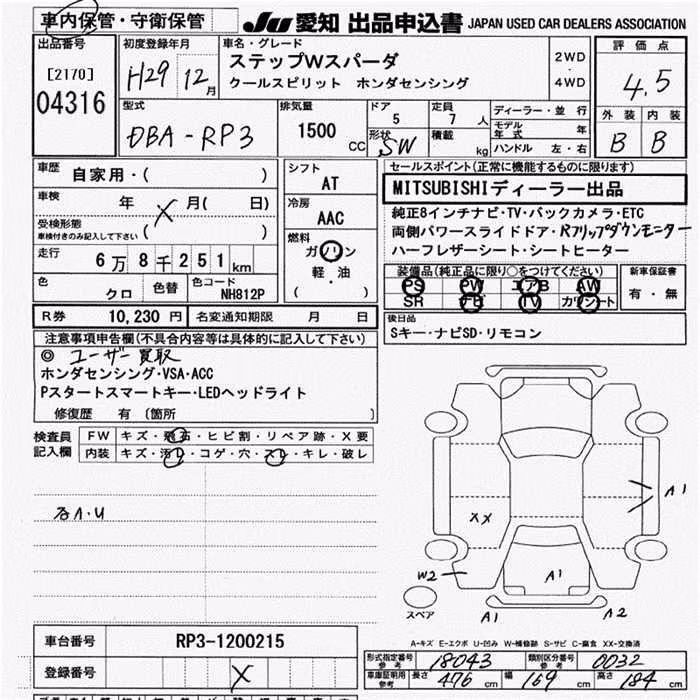 車内保管・守衛保管 JU 愛知 出品申込書 JAPAN USED CAR DEALERS ASSOCIATION
出品番号 初度登録年月 車名・グレード 評価点
[2170] H29 12月 ステップWスパーダ 2WD・4WD 4.5
クールスピリット ホンダセンシング
04316 型式 排気量 ドア 定員 ディーラー・並行 外装 内装
DBA-RP3 1500CC 5 7人 モデル年式 年 B B
形状 SW 積載 kg ハンドル 左・右
車歴 自家用・( ) シフト AT セールスポイント(正常に機能するものに限ります)
車検 年 X 月( 日) 冷房 AAC MITSUBISHIディーラー出品
受検形態 純正8インチナビ・TV・バックカメラ・ETC
車検付きのみ記入して下さい ( ) 燃料 両側パワースライドドア・Rフリップダウンモニター
走行 6万8千251km ガソリン ハーフレザーシート・シートヒーター
軽・油 装備品(純正品に限り○をつけてください) 新車保証書
色 クロ 色替 色コード NH812P ( ) PS PW エアB AW 有・無
SR TV カワシート
R券 10,230円 名変通知期限 月 日 後日品
Sキー・ナビSD・リモコン
注意事項申告欄(不具合内容等は具体的に記入して下さい)
◎ ユーザー買取
ホンダセンシング・VSA・ACC
Pスタートスマートキー・LEDヘッドライト
修復歴 有 〔箇所 〕
検査員記入欄 FW キズ・飛石・ヒビ割・リペア跡・X要
内装 キズ・汚レ・コゲ・穴・スレ・キレ・破レ
A1
XX
A・U
W2 A1
スペア A1 A2
A-キズ E-エクボ U-凹み W-補修跡 S-サビ C-腐食 XX-交換済
車台番号 RP3-1200215
登録番号 X
形式指定番号 参考 18043 類別区分番号 参考 0032
車庫証明用 参考 長さ 476cm 幅 169cm 高さ 184cm